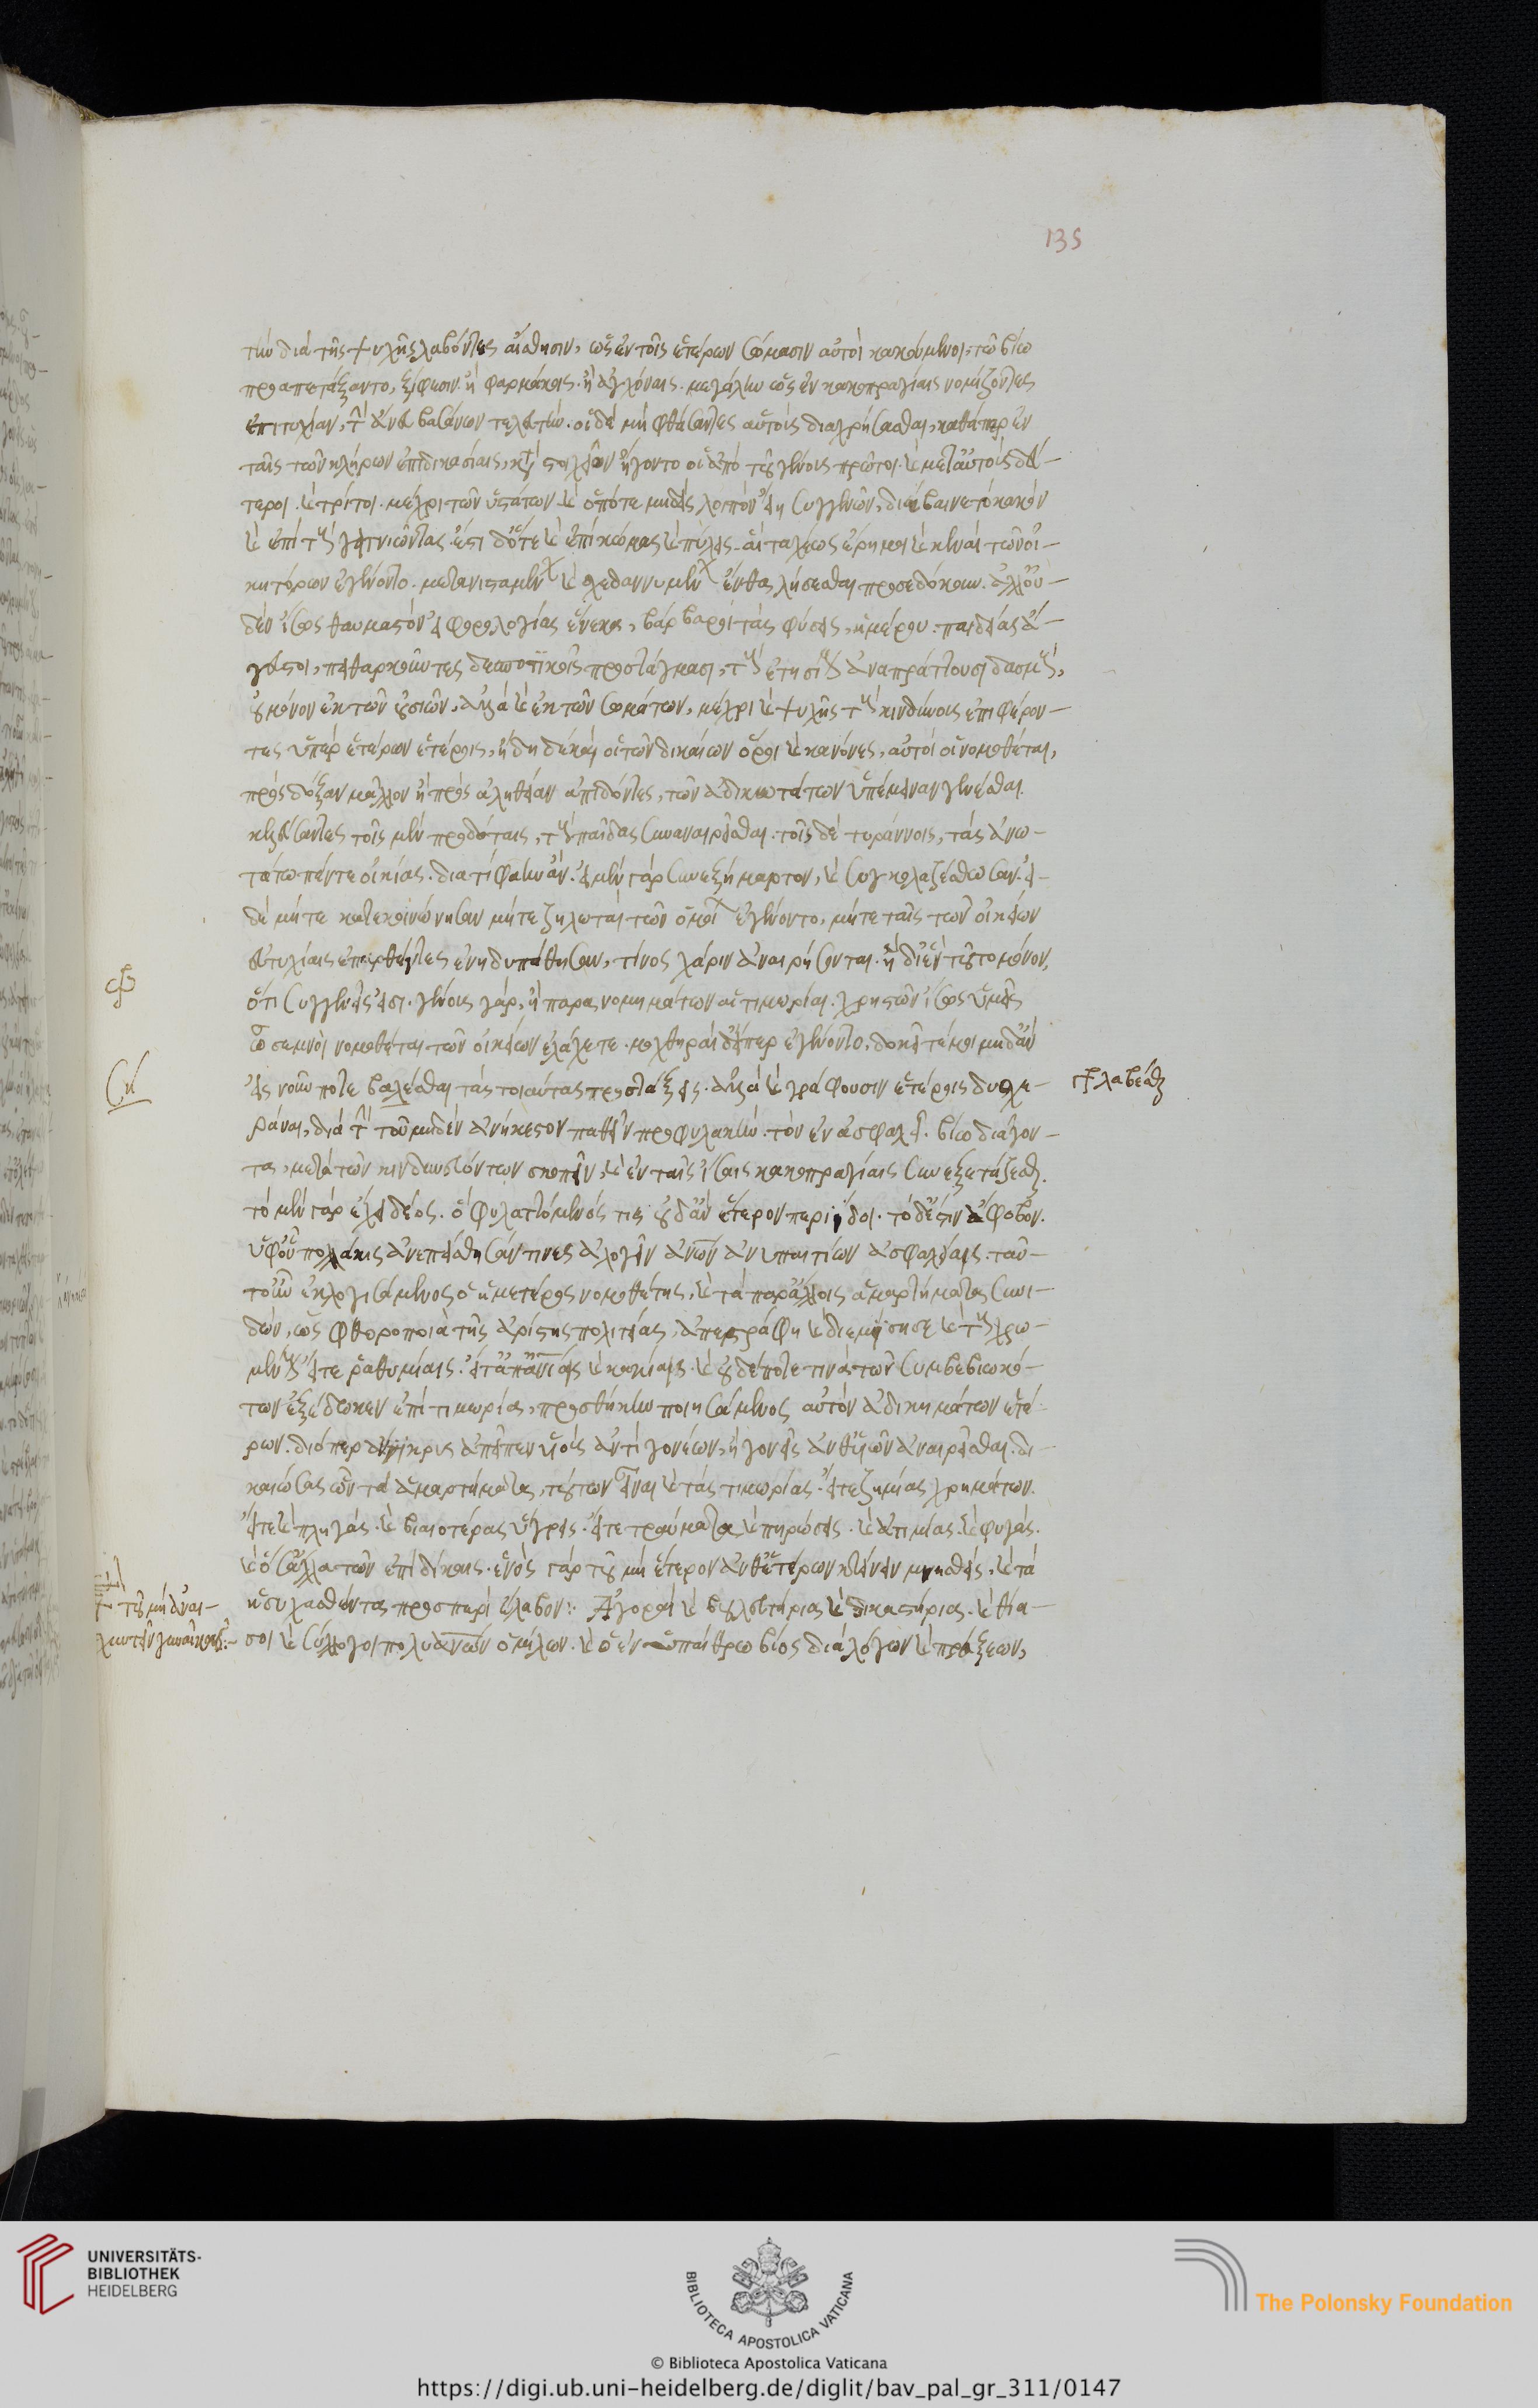 135
τὴν διὰ τῆς ψυχῆς λαβόντες αἴσθησιν, ὡς ἐν τοῖς ἑτέρων σώμασιν αὐτοὶ κακούμενοι, τῶ βίω
προαπετάξαντο, ξίφεσιν ἢ φαρμάκοις ἢ ἀγχόναις. μεγάλην ὡς ἐν κακοπραγίαις νομίζοντες
ἐπιτυχίαν, τὴν ἄνευ βασάνων τελευτήν. οἱ δὲ μὴ φθάσαντες αὐτοὺς διαχρήσασθαι, καθάπερ ἐν
ταῖς τῶν κλήρων ἐπιδικασίαις, κατὰ στοῖχον ἤγοντο οἱ ἀπὸ τοῦ γένους πρῶτοι. καὶ μετ' αὐτοὺς δεύ-
τεροι. καὶ τρίτοι. μέχρι τῶν ὑστάτων. καὶ ὁπότε μηδεὶς λοιπὸν εἴη συγγενῶν, διέβαινε τὸ κακὸν
καὶ ἐπὶ τοὺς γειτνιῶντας. ἔστι δ' ὅτε καὶ ἐπὶ κώμας καὶ πόλεις. αἳ ταχέως ἔρημοι καὶ κεναὶ τῶν οἰ-
κητόρων ἐγένοντο. μετανισταμένων καὶ σκεδαννυμένων ἔνθα λήσεσθαι προσεδόκων. ἀλλ' οὐ-
δὲν ἴσως θαυμαστὸν εἰ φορολογίας ἕνεκα, βάρβαροι τὰς φύσεις, ἡμέρου παιδείας ἄ-
γευστοι, πειθαρχοῦντες δεσποτικοῖς προστάγμασι, τοὺς ἐτησίους ἀναπράττουσι δασμούς,
οὐ μόνον ἐκ τῶν οὐσιῶν, ἀλλὰ καὶ ἐκ τῶν σωμάτων, μέχρι καὶ ψυχῆς τοὺς κινδύνους ἐπιφέρον-
τες ὑπὲρ ἑτέρων ἑτέροις. ἤδη δὲ καὶ οἱ τῶν δικαίων ὅροι καὶ κανόνες, αὐτοὶ οἱ νομοθέται,
πρὸς δόξαν μᾶλλον ἢ πρὸς ἀλήθειαν ἀπιδόντες, τῶν ἀδικωτάτων ὑπέμειναν γενέσθαι
κελεύσαντες τοῖς μὲν προδόταις, τοὺς παῖδας συναναιρεῖσθαι. τοῖς δὲ τυράννοις, τὰς ἀνω-
τάτω πέντε οἰκίας. διὰ τί φαίην ἄν. εἰ μὲν γὰρ συνεξήμαρτον, καὶ συγκολαζέσθωσαν. εἰ
δὲ μήτε κατεκοινώνησαν μήτε ζηλωταὶ τῶν ὁμοίων ἐγένοντο, μήτε ταῖς τῶν οἰκείων
εὐτυχίαις ἐπαρθέντες ἐνηδυπάθησαν, τίνος χάριν ἀναιρήσονται. ἢ δι' ἓν τοῦτο μόνον,
ὅτι συγγενεῖς εἰσι. γένους γὰρ, ἢ παρανομημάτων αἱ τιμωρίαι. χρηστῶν ἴσως ὑμεῖς
ὦ σεμνοὶ νομοθέται τῶν οἰκείων ἐλάχετε. μοχθηροὶ δ' εἴπερ ἐγένοντο, δοκεῖτέ μοι μηδ' ἂν
εἰς νοῦν ποτε βαλέσθαι τὰς τοιαύτας προστάξεις. ἀλλὰ καὶ γράφουσιν ἑτέροις δυσχε-
ρᾶναι, διὰ τὴν τοῦ μηδὲν ἀνήκεστον παθεῖν προφυλακήν. τὸν ἐν ἀσφαλεῖ βίω διάγον-
τα, μετὰ τῶν κινδυνευόντων σκοπεῖν, καὶ ἐν ταῖς ἴσαις κακοπραγίαις συνεξετάζεσθαι.
τὸ μὲν γὰρ ἔχει δέος. ὃ φυλαττόμενός τις οὐδ' ἂν ἕτερον περιίδοι. τὸ δέ ἐστιν ἄφοβον.
ὑφ' οὗ πολλάκις ἀνεπείσθησάν τινες ἀλογεῖν ἀνων ἀνυπαιτίων ἀσφαλείας. ταῦ-
τ' οὖν ἐκλογισάμενος ὁ ἡμέτερος νομοθέτης, καὶ τὰ παρ' ἄλλοις ἁμαρτήματα συνι-
δών, ὡς φθοροποιὰ τῆς ἀρίστης πολιτείας, ἀπεστράφη καὶ διεμίσησε καὶ τοὺς χρω-
μένους εἴτε ῥαθυμίαις. εἴτ' ἀπανίαις καὶ κακίαις. καὶ οὐδέποτέ τινα τῶν συμβεβιωκό-
των ἐξέδωκεν ἐπὶ τιμωρία, προσθήκην ποιησάμενος αὐτὸν ἀδικημάτων ἑτέ-
ρων. διόπερ ἄντικρυς ἀπεῖπεν υἱοὺς ἀντὶ γονέων, ἢ γονεῖς ἀνθ' υἱῶν ἀναιρεῖσθαι. δι-
καιώσας ὧν τὰ ἁμαρτήματα, τούτων εἶναι καὶ τὰς τιμωρίας. εἴτε ζημίας χρημάτων.
εἴτε καὶ πληγάς. καὶ βιαιοτέρας ὕβρεις. εἴτε τραύματα καὶ πηρώσεις. καὶ ἀτιμίας. καὶ φυγάς.
καὶ ὅσα ἄλλα τῶν ἐπὶ δίκαις. ἑνὸς γὰρ τοῦ μὴ ἕτερον ἀνθ' ἑτέρων κτείνειν μνησθείς, καὶ τὰ
ἡσυχασθέντα προσπεριέλαβον: Ἀγοραὶ καὶ βουλευτήρια καὶ δικαστήρια. καὶ θία-
σοι καὶ σύλλογοι πολυανων ὁμίλων. καὶ ὁ ἐν ὑπαίθρω βίος διὰ λόγων καὶ πράξεων,
ἐκλαβέσθαι
UNIVERSITÄTS-
BIBLIOTHEK
HEIDELBERG
BIBLIOTECA APOSTOLICA VATICANA
© Biblioteca Apostolica Vaticana
The Polonsky Foundation
https://digi.ub.uni-heidelberg.de/diglit/bav_pal_gr_311/0147